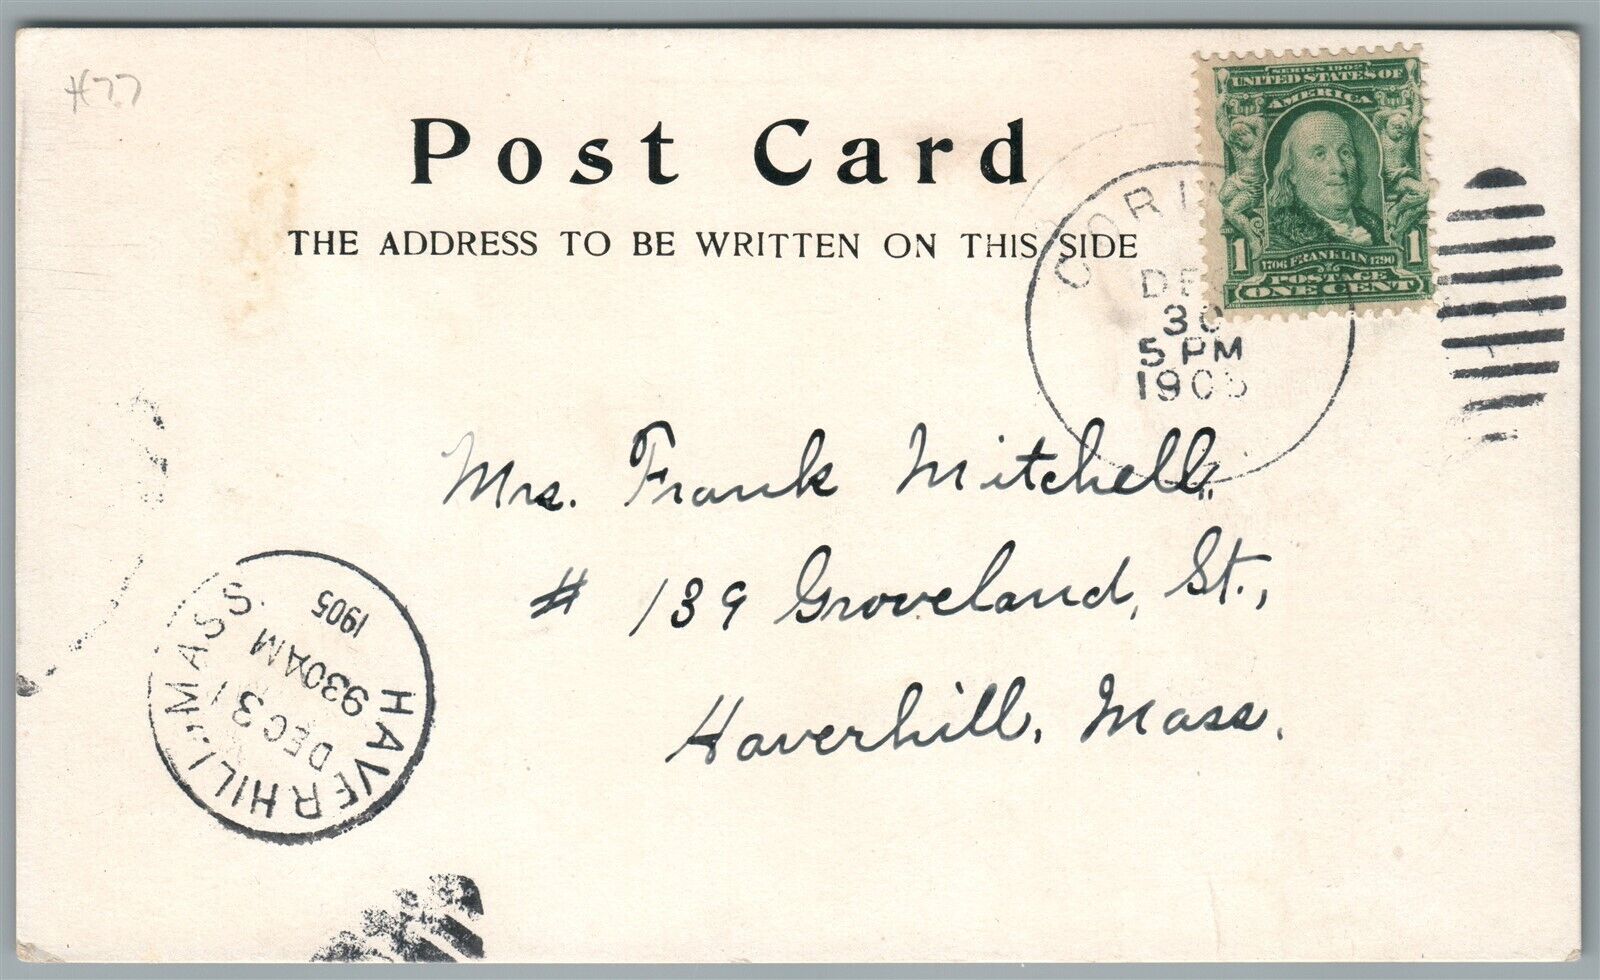 H77
Post Card
THE ADDRESS TO BE WRITTEN ON THIS SIDE
SERIES 1902
UNITED STATES OF
AMERICA
1 1706 FRANKLIN 1790 1
POSTAGE
ONE CENT
DEC
30
5 PM
1905
Mrs. Frank Mitchell,
# 139 Groveland, St.,
Haverhill, Mass.
HAVERHILL. MASS.
DEC 31
930AM
1905